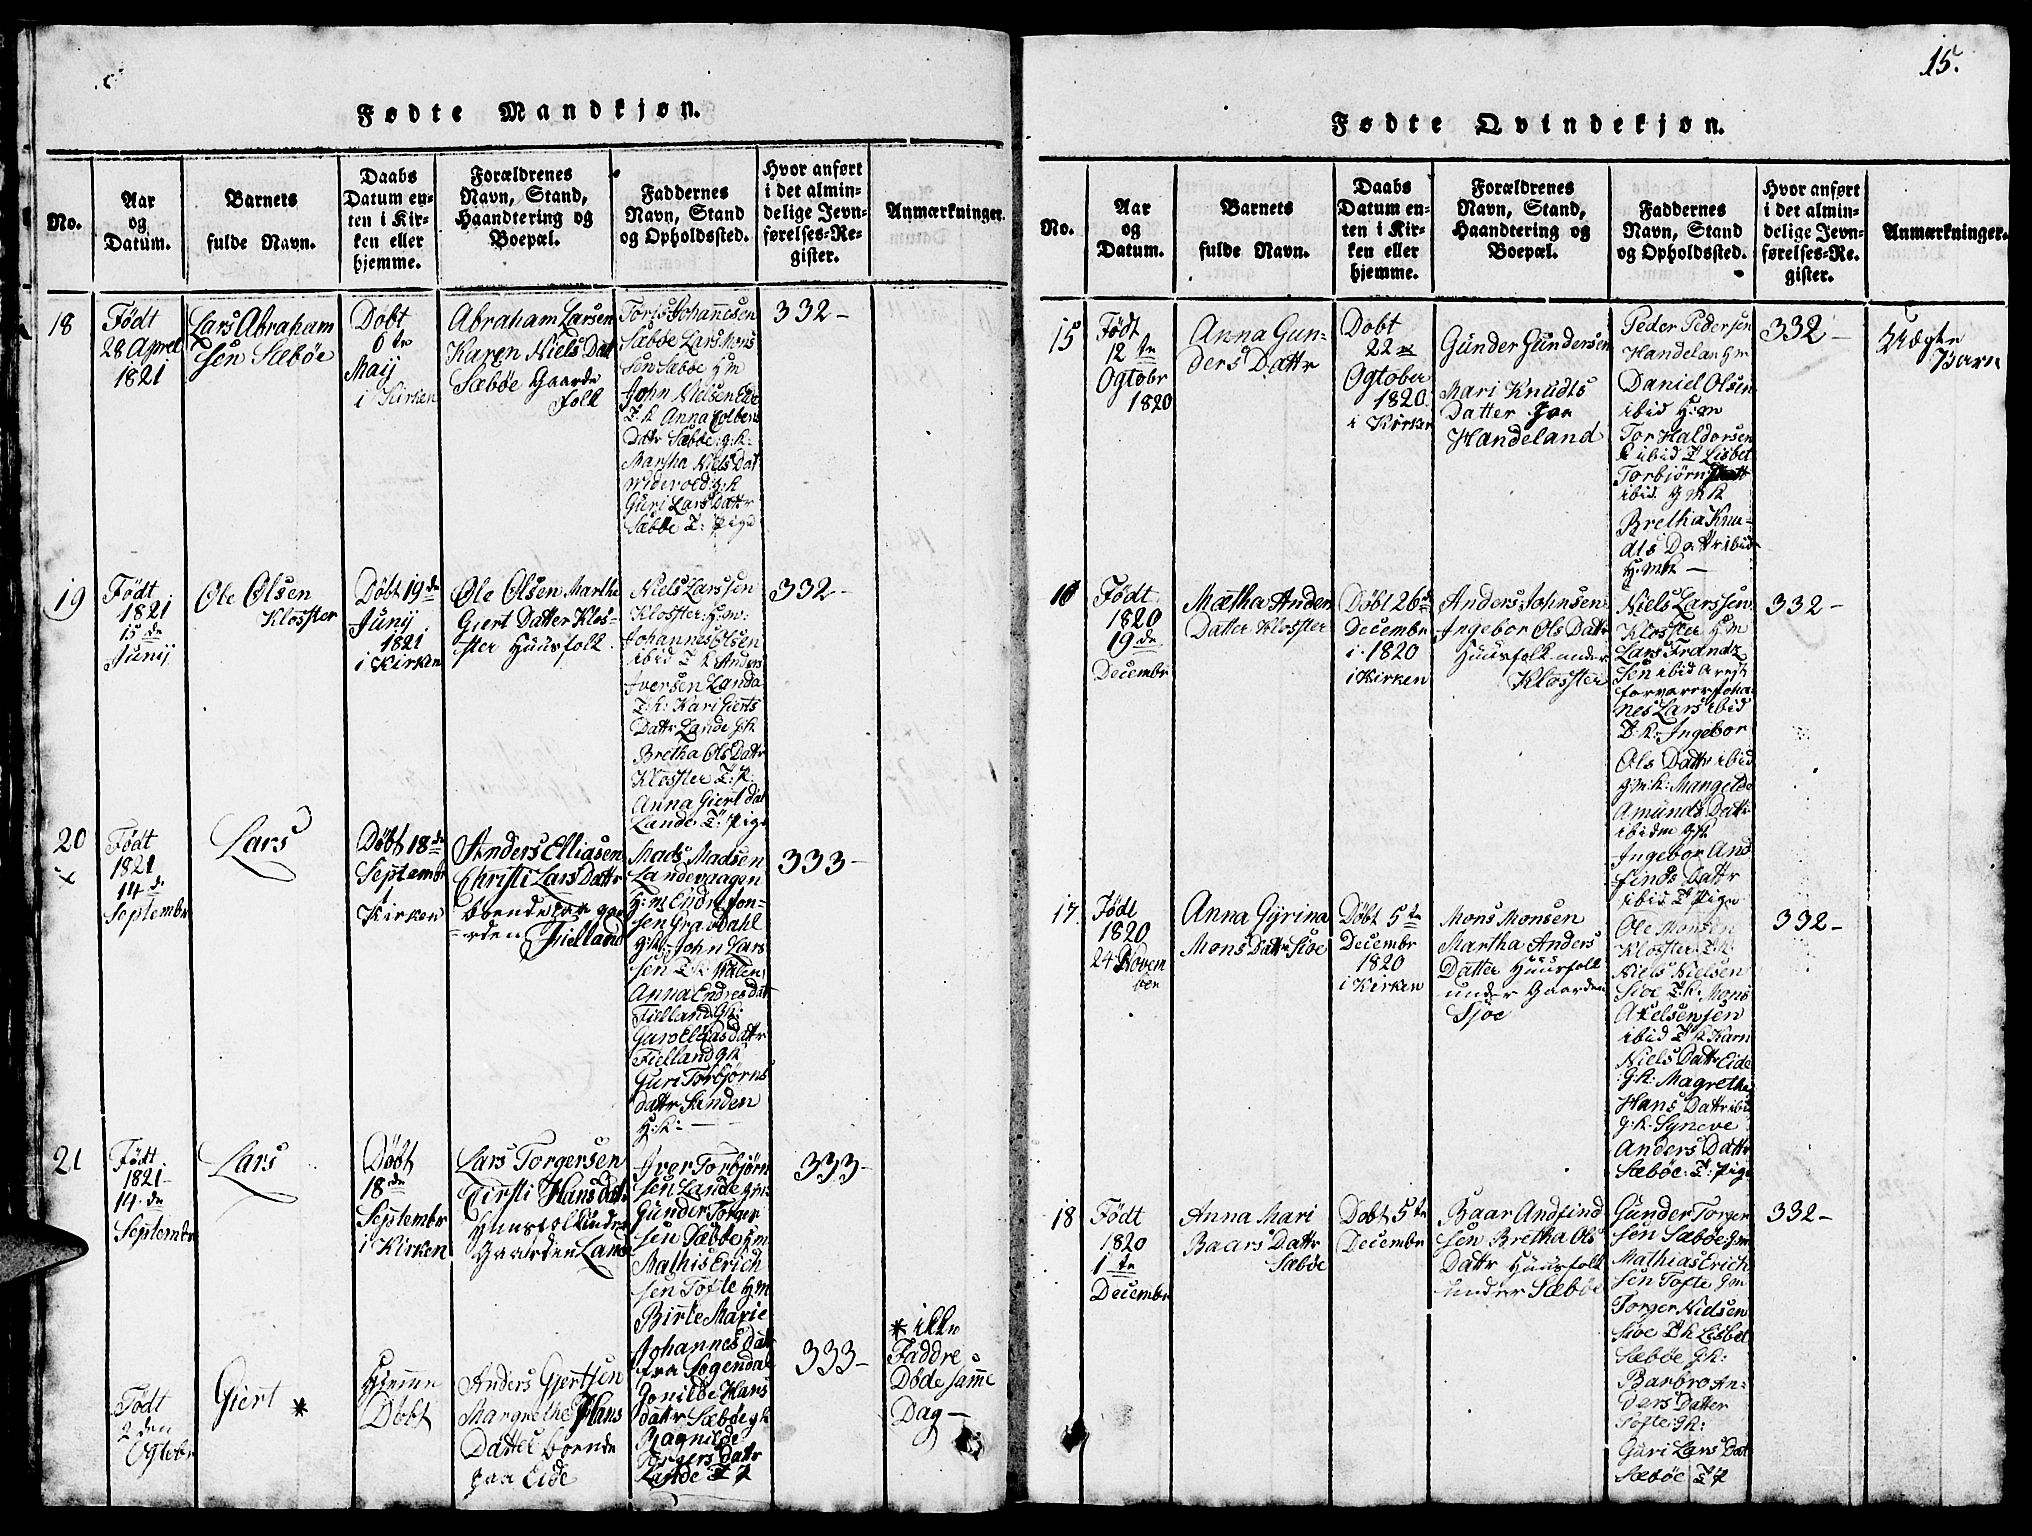 Fødte Mandkjøn.
No.
Aar
og
Datum.
Barnets
fulde Navn.
Daabs
Datum en-
ten i Kir-
ken eller
hjemme.
Forældrenes
Navn, Stand,
Haandtering og
Boepæl.
Faddernes
Navn, Stand
og Opholdssted.
Hvor anført
i det almin-
delige Jevn-
førelses-Re-
gister.
Anmærkninger.
18
Født
28 Apprel
1821
Lars Abraham
sen Sæbøe
Døbt
6 te
Maij
i Kirken
Abraham Larsen
Karen Niels Datt
Sæbøe Gaarde
folk
Toris Johannesen
Sæbøe Lars Mons
sen Sæbøe Hm
John Nielsen Eide
T: k Anna
Datr Sæbøe: g:k:
Martha Niels Dat
g:k
Guri Lars Dattr
Sæbøe T: pige
332 –
19
Født
1821
15 de
Junij
Ole Olsen
Kloster
Døbt 19 de
Junij
1821
i Kirken
Ole Olsen Marthe
Giert Datter Klos-
ster Huusfolk
Niels Larssen
Klosster: H:m:
Johannes Olsen
ibid T k Anders
Iversen Landa
T:k: Kari Gierts
Dattr Lande g:k
Bretha Ols Dattr
Klosster T: p:
Anna Giert dat
Lande T: pige
332 –
20
x
Født
1821
14 de
Septembr
Lars
Døbt 18 de
Septembr
i
Kirken
Anders Elliasen
Christi Lars Dattr
boende paa gaa
rden Fielland
Mads Madsen
Landevaagen
H:m Endre Jon-
sen Gravdahl
g:k: John Lars
sen T:k
Anna Endres dat
Fielland G:k:
Guro Elias dattr
Fielland g:k
Guri Torbjørns
dattr Sanden
H:k: –
333 –
21
Født
1821
14 de
Septembr
Lars
Døbt
18 de
Septembr
i Kirken
Lars Torgersen
Kirsti Hans datr
Huusfolk under
Gaarden Lande
Iver Torbjørn
sen Lande g:m:
Gunder Torger
sen Sæbøe g:m
Mathis Erich
sen Tofte H:m
Birte Marie
Johannes dat
fra Sogendal
Gonilde Hans
datr Sæbøe g:k
Ragnilde
Torgers Dattr
Lande T p
333 –
Født
2 den
Ogtobr
Giert *
Hiemme
Døbt
Anders Gjertsen
Margrethe Hans
Datter boende
paa Eide
333 –
* ikke
Faddre
Døde samme
Dag –
15.
Fødte Qvindekjøn.
No.
Aar
og
Datum.
Barnets
fulde Navn.
Daabs
Datum en-
ten i Kir-
ken eller
hjemme.
Forældrenes
Navn, Stand,
Haandtering og
Boepæl.
Faddernes
Navn, Stand
og Opholdssted.
Hvor anført
i det almin-
delige Jevn-
førelses-Re-
gister.
Anmærkninger.
15
Født
12 te
Ogtobr
1820
Anna Gun-
ders Dattr
Dobt
22
Ogtober
1820
i Kirken
Gunder Gundersen
Mari Knudts
Datter paa
Handeland
Peder Pedersen
Handelan H:m
Daniel Olsen
ibid H:m
Tor Haldorsen
ibid T Lisbet
Torbjørns Datt
ibid. g m k
Bretha Knu-
dts Dattr ibid
H:mk –
332 –
Uægte
Barn
16
Født
1820
19 de
Decembr
Mætha Anders
Datter Klosster
Døbt 26 de
Decembr
i 1820
i Kirken
Anders Johnsen
Ingebor Ols Dattr
Huusfolk under
Klosster
Niels Larssen
Klosster H:m
Lars Frandz
sen ibid Arest
forvarer Joha-
nes Lars ibid
T:k: Ingebor
Ols Dattr ibid
g:m:k: Mangelde
Amunds Dattr
ibidm g:k
Ingebor And
finds Dattr
ibid T pige
332 –
17
Født
1820
24 Novem
ber
Anna Gÿrina
Mons Datr Siøe
Døbt 5 te
Decembr
1820
i Kirken
Mons Monsen
Martha Anders
Datter Huusfolk
under Gaarden
Sjøe
Ole Monsen
Klosster T:k
Niels Nielsen
Siøe T:k: Mons
Axelsensen
ibid T k Karn
Niels Dattr Eide
g:k: Magrethe
Hans Dattr ibi
g:k: Syneve
Anders Dattr
Sæbøe: T: pige
332 –
18
Født
1820
1 te
Decembr
Anna Mari
Baars Dattr
Sæbøe
Døbt 5 te
Decembr
Baar Andfind
sen Bretha Ols
Dattr Huusfolk
under Sæbøe
Gunder Torger
sen Sæbøe g:m
Mathias Erich
sen Tofte g:m
Torger Nielsen
Siøe T:k Lisbet
Sæbøe g:k:
Barbro An-
ders Datter
Tofte g:k:
Guri Lars Dat
Sæbøe T p
332 –